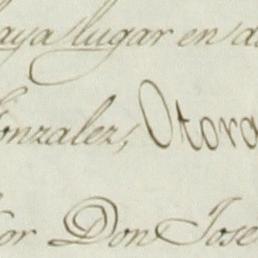 aya lugar en
onzalez, Otorg
or Don Jose